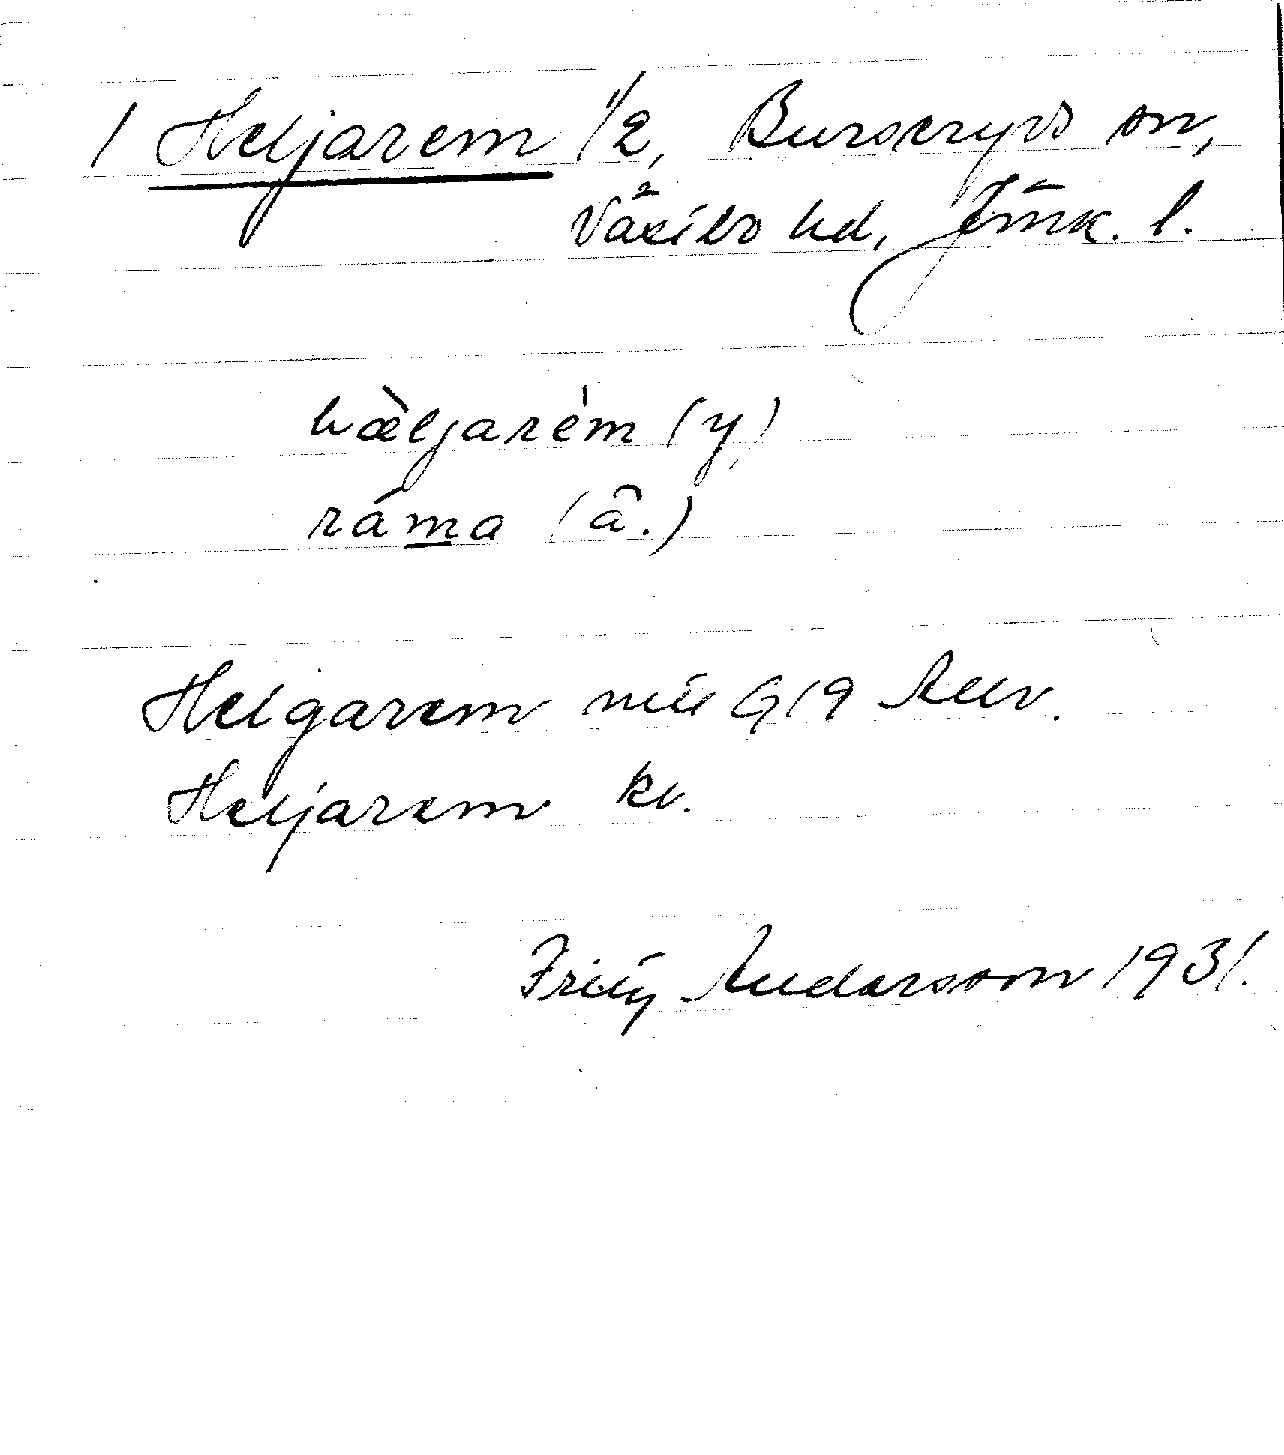 1 Heljarem 1/2, Burseryds sn,
Västbo hd, Jönk. l.
hæ̀ljarém (y)
ráma (â.)
Helgarem G19 Aev.
Heljarem kv.
Frity Andersson 1931.